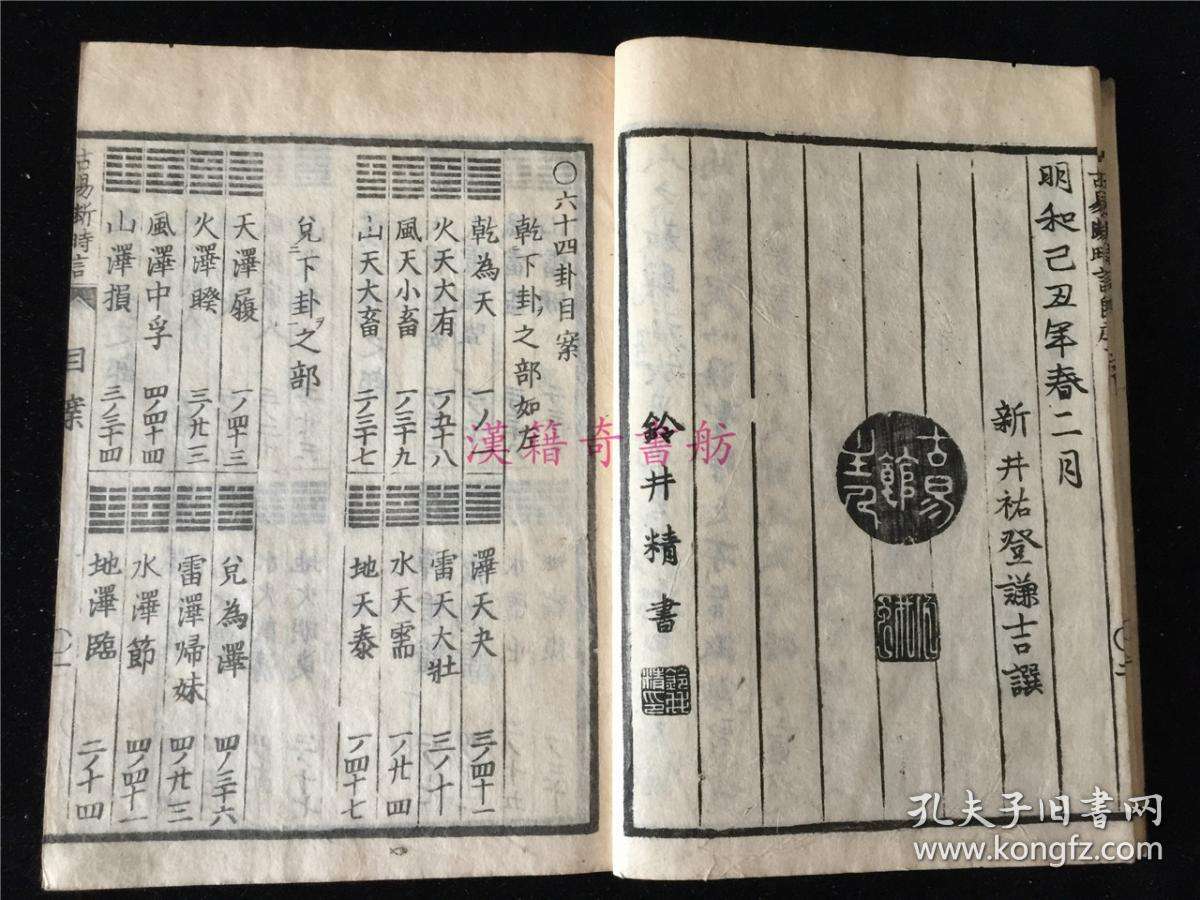 明和己丑年春二月
新井祐登謙吉譔
古易館主
鈴井精書
〇六十四卦目案
乾下卦之部如左
乾為天 一ノ一
火天大有 一ノ五十八
風天小畜 一ノ三十九
山天大畜 二ノ三十七
澤天夬 三ノ四十一
雷天大壯 三ノ十
水天需 一ノ廿四
地天泰 一ノ四十七
兌下卦之部
天澤履 一ノ四十三
火澤睽 三ノ廿三
風澤中孚 四ノ四十四
山澤損 三ノ三十四
兌為澤 四ノ三十六
雷澤帰妹 四ノ廿三
水澤節 四ノ四十一
地澤臨 二ノ十四
古易斷時言
目案
漢籍奇書舫
孔夫子旧书网
www.kongfz.com